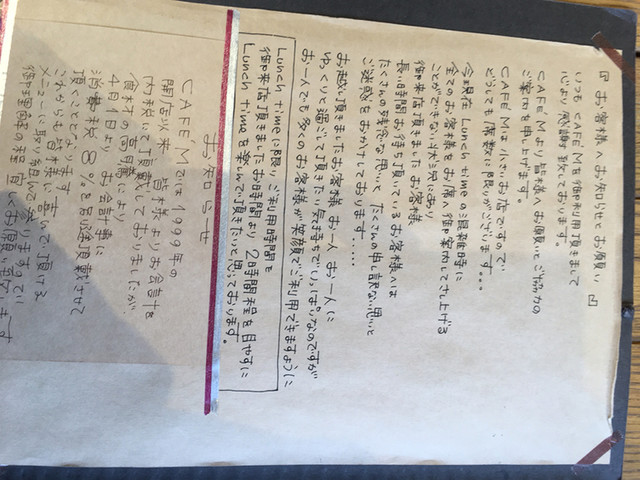 『お客様へお知らせとお願い』
いつもCAFE Mを御利用頂きまして
心より感謝致しております。
CAFE Mより皆様へお願いとご協力の
ご案内を申し上げます。
CAFE Mは小さいお店ですので
どうしても席数に限りがございます...
今現在Lunch timeの混雑時に
全てのお客様をお席へ御案内して差し上げる
ことができない状況にあり
御来店頂きましたお客様
長い時間お待ち頂いているお客様には
たくさんの残念な思いとたくさんの申し訳ない思いと
ご迷惑をおかけしております
......
お越し頂きましたお客様お一人お一人に
ゆっくりと過ごして頂きたい気持ちでいっぱいなのですが
お一人でも多くのお客様が笑顔でご利用できますように
Lunch timeに限りご利用時間を
御来店頂きましたお時間より2時間程を目やすに
Lunch timeを楽しんで頂きたいと思っております。
お知らせ
CAFE Mでは1999年の
開店以来皆様よりお会計を
内税にて頂戴しておりましたが
食材の高騰により
4月1日よりお会計に
消費税8%を別途頂戴させて
頂くこととなります
これからも皆様に喜んで頂ける
メニューに取り組んで参りますので
御理解の程宜しくお願い致します